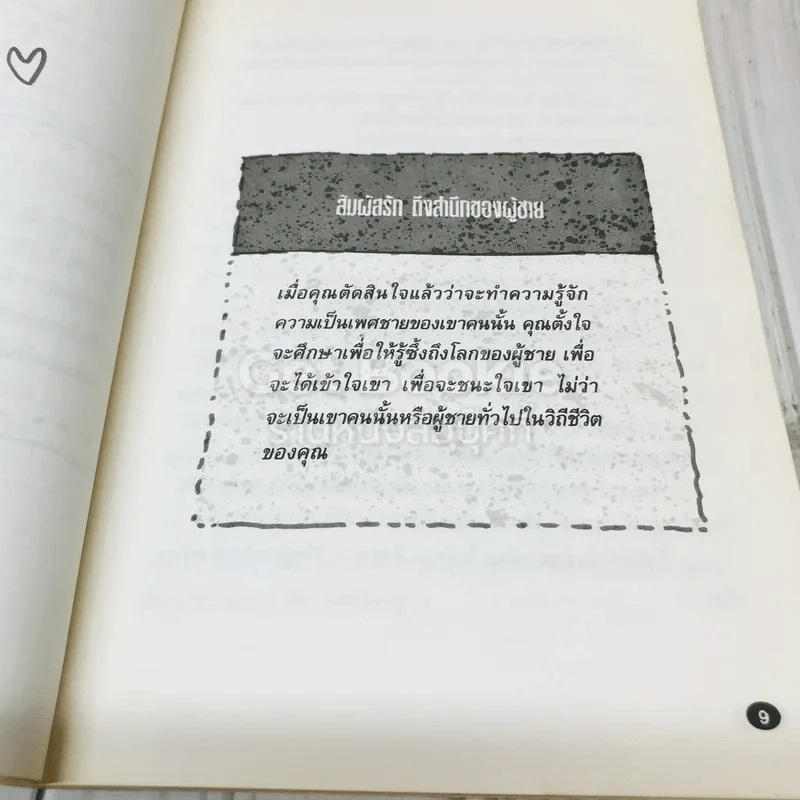 สัมผัสรัก ถึงสำนึกของผู้ชาย
เมื่อคุณตัดสินใจแล้วว่าจะทำความรู้จัก
ความเป็นเพศชายของเขาคนนั้น คุณตั้งใจ
จะศึกษาเพื่อให้รู้ซึ้งถึงโลกของผู้ชาย เพื่อ
จะได้เข้าใจเขา เพื่อจะชนะใจเขา ไม่ว่า
จะเป็นเขาคนนั้นหรือผู้ชายทั่วไปในวิถีชีวิต
ของคุณ
9